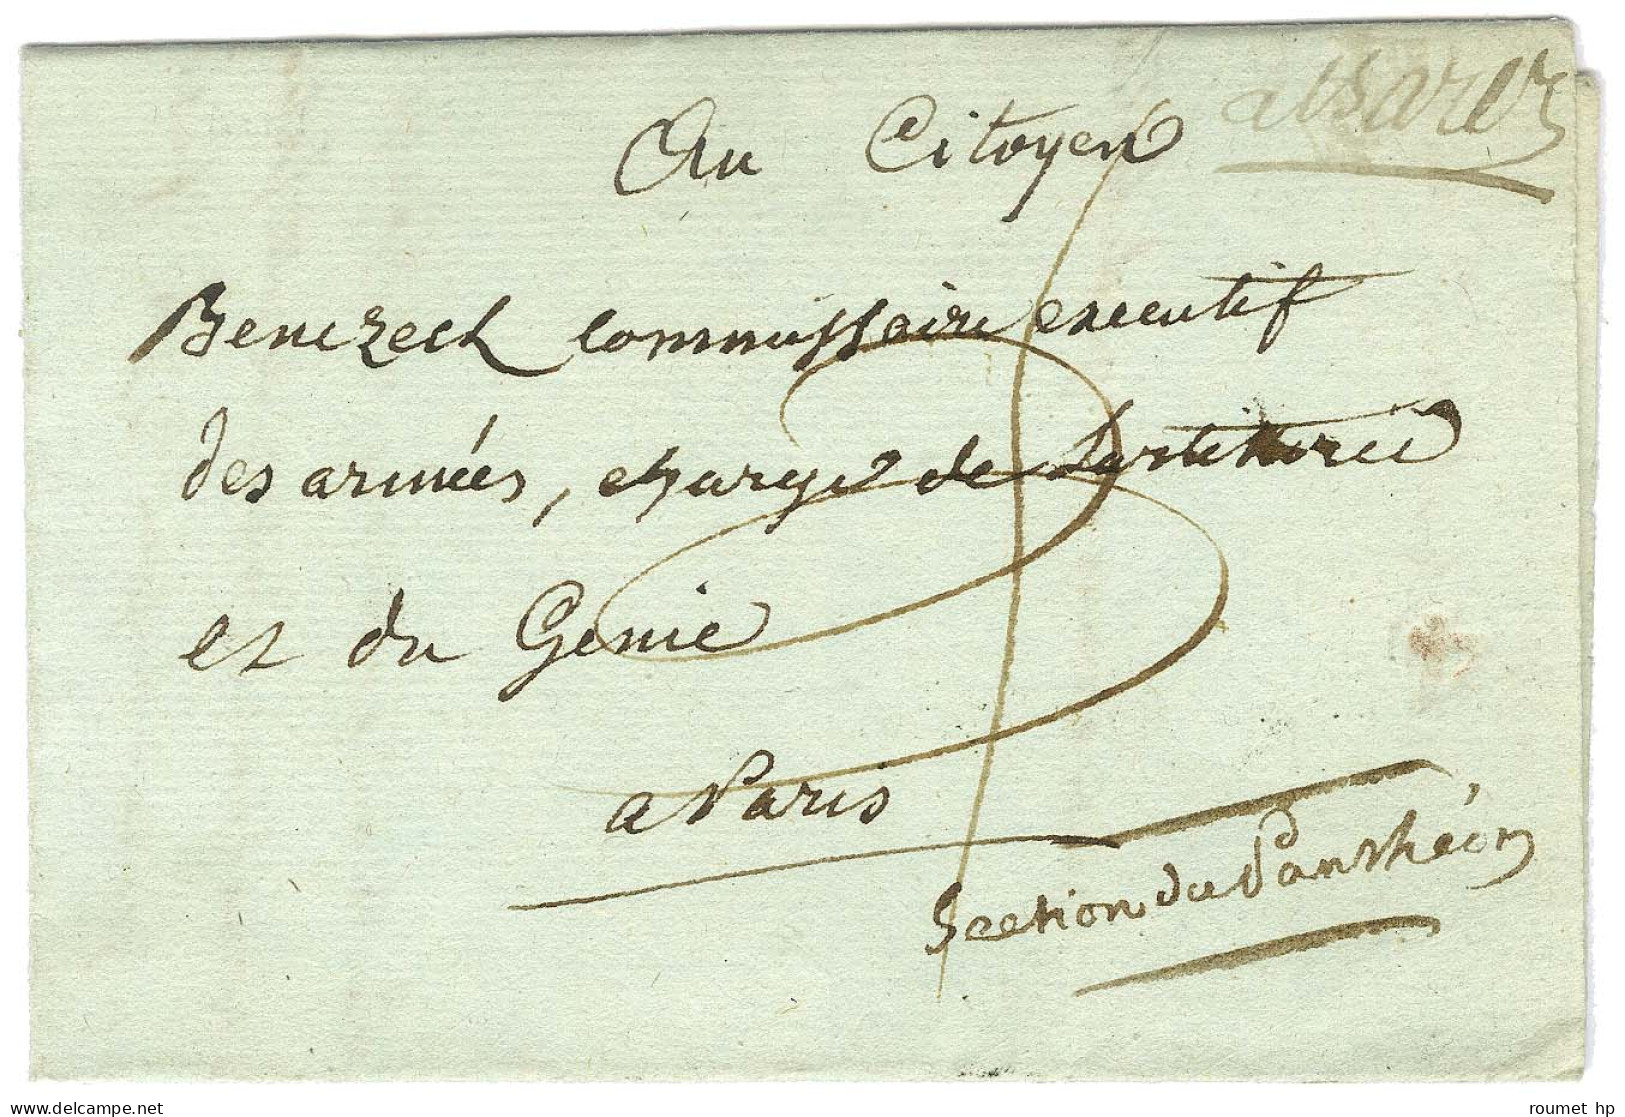 Au Citoyen
Benezech commissaire executif
des armées, chargé de Lartillerie
et du Genie
a Paris
Section du Panthéon
roumet hp